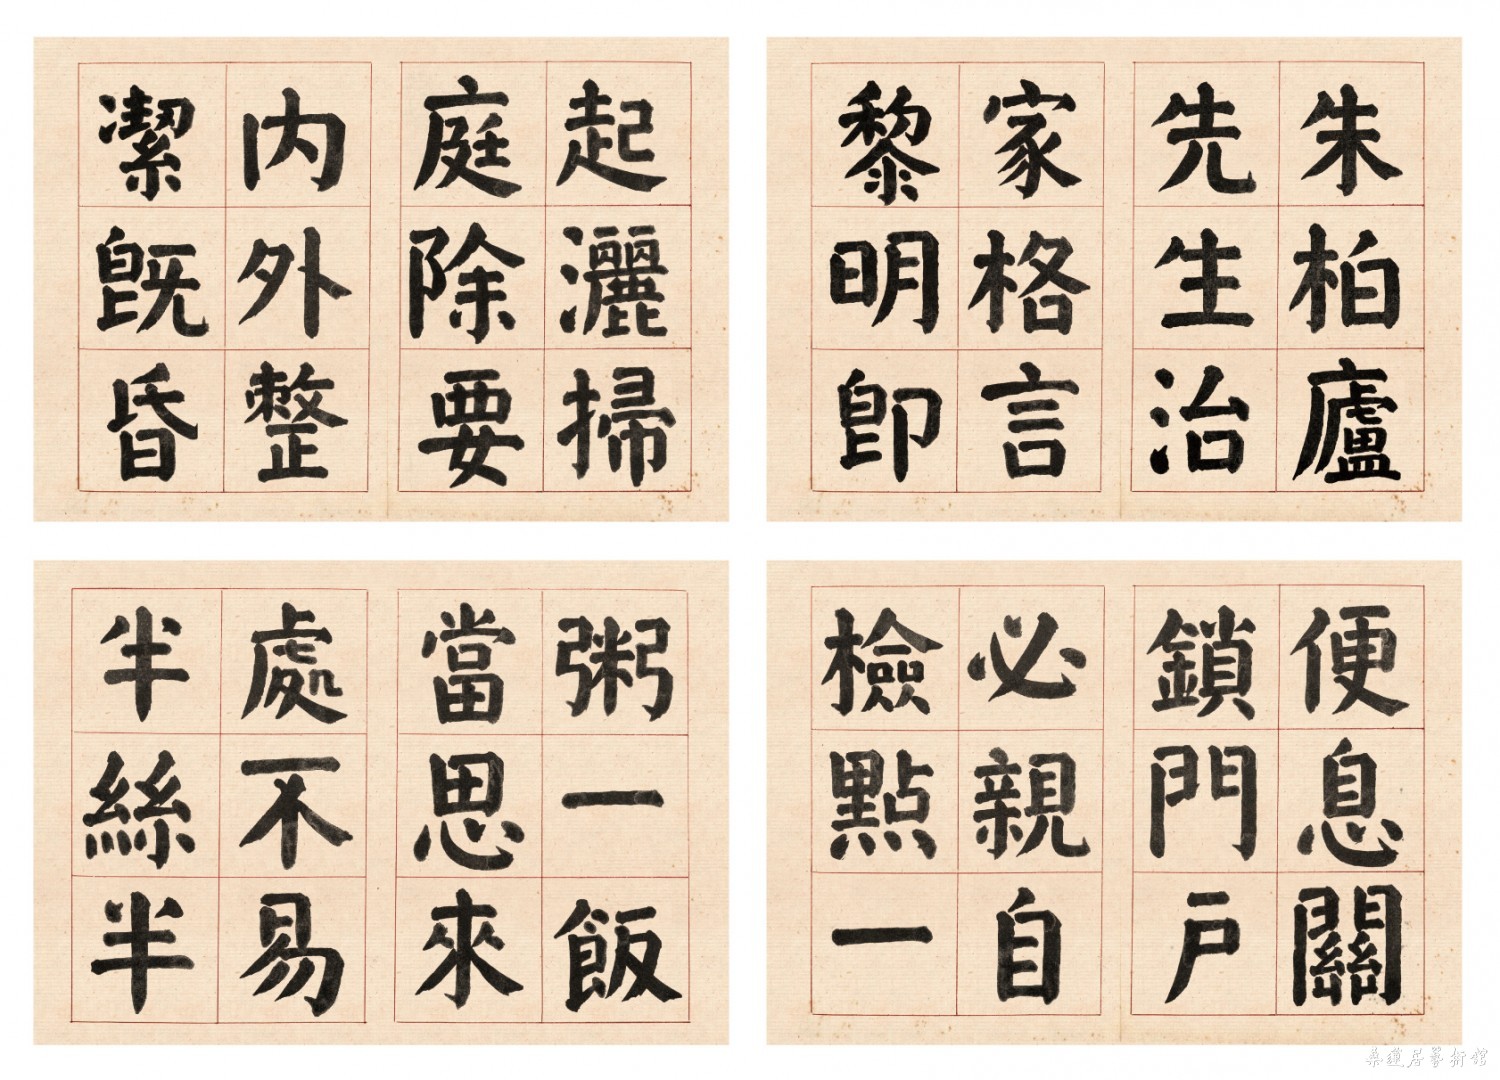 朱柏廬
先生治
家格言
黎明即
起灑掃
庭除要
內外整
潔既昏
便息關
鎖門戶
必親自
檢點一
粥一飯
當思來
處不易
半絲半
桑蓮居藝術館